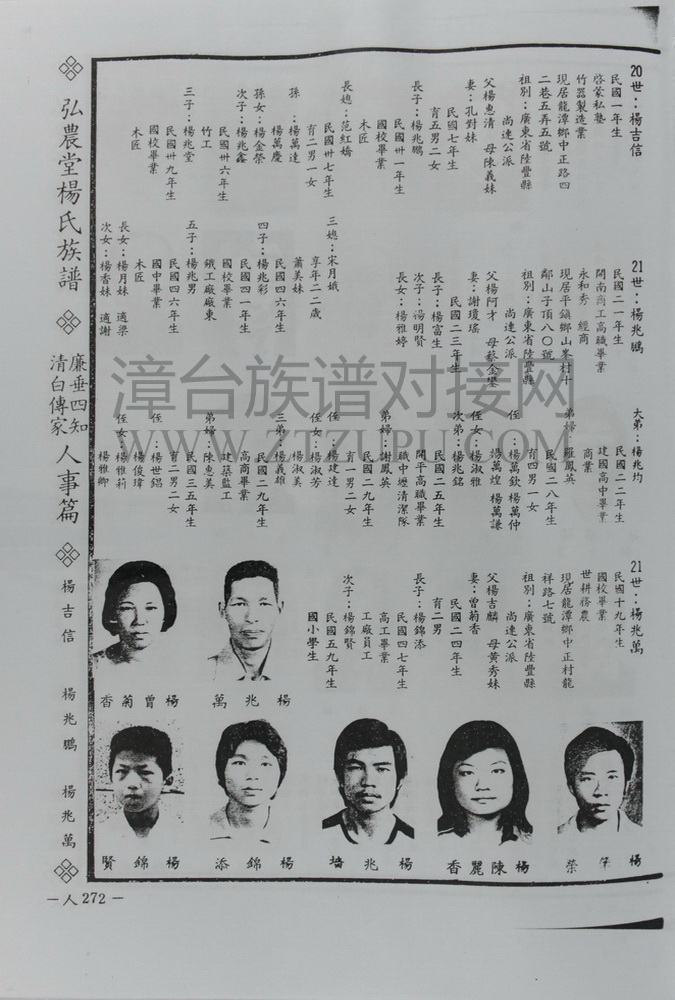 弘農堂楊氏族譜
廉垂四知
清白傳家
人事篇
楊吉信
楊兆鵬
楊兆萬
20世：楊吉信
民國一年生
啓蒙私塾
竹器製造業
現居龍潭鄉中正路四
二巷五弄五號
祖別：廣東省陸豐縣
尚達公派
父楊惠清 母陳義妹
妻：孔對妹
民國七年生
育五男二女
長子：楊兆鵬
民國卅一年生
國校畢業
木匠
長媳：范紅嬌
民國卅七年生
育二男一女
孫：楊萬達
楊萬慶
孫女：楊金榮
次子：楊兆鑫
民國卅六年生
竹工
三子：楊兆堂
民國卅九年生
國校畢業
木匠
三媳：宋月娥
享年二二歲
蕭美妹
民國四六年生
四子：楊兆彩
民國四一年生
國校畢業
鐵工廠廠東
五子：楊兆男
民國四六年生
國中畢業
木匠
長女：楊月妹 適梁
次女：楊香妹 適謝
21世：楊兆鵬
民國二一年生
開南商工高職畢業
永和秀 經商
現居平鎮鄉山峯村十
鄰山子頂八〇號
祖別：廣東省陸豐縣
尚達公派
父楊阿才
妻：謝瓊瑤
民國二三年生
長子：楊富生
次子：楊明賢
長女：楊雅婷
大弟：楊兆均
民國二二年生
建國高中畢業
商業
弟婦：羅鳳英
民國二八年生
育四男一女
侄：楊萬欽 楊萬仲
楊萬煌 楊萬謙
侄女：楊淑雅
次弟：楊兆銘
民國二五年生
開平高職畢業
職中壢清潔隊
弟婦：謝鳳英
民國二九年生
育一男二女
侄：楊建達
侄女：楊淑芳
楊淑美
三弟：楊義雄
民國二九年生
高商畢業
建築監工
弟婦：陳惠美
民國三五年生
育二男二女
侄：楊世錩
楊俊瑋
侄女：楊雅莉
楊雅卿
21世：楊兆萬
民國十九年生
國校畢業
世耕務農
現居龍潭鄉中正村龍
祥路七號
祖別：廣東省陸豐縣
尚達公派
父楊吉麟 母黃秀妹
妻：曾菊香
民國二四年生
育二男
長子：楊錦添
民國四七年生
高工畢業
工廠員工
次子：楊錦賢
民國五九年生
國小學生
香菊曾楊
萬兆楊
賢錦楊
添錦楊
墻兆楊
香麗陳楊
榮 楊
－人272－
漳台族谱对接网
WWW.ZTZUPU.COM